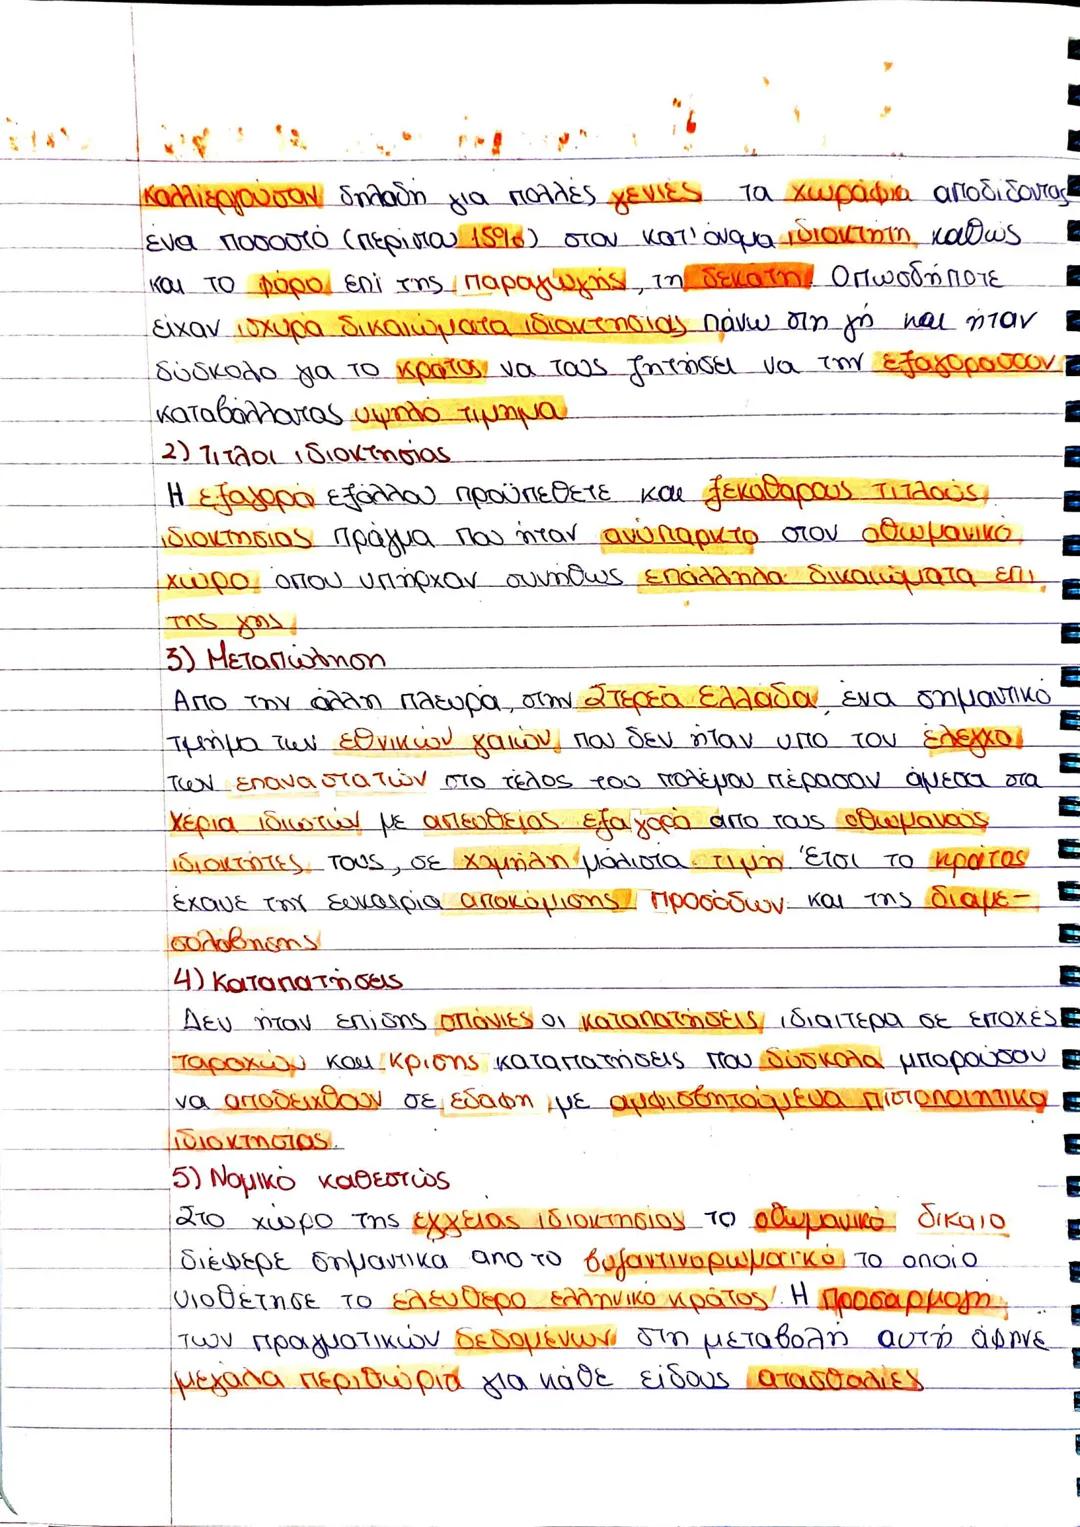 καλλιεργούσαν δηλαδή για πολλές γενιές τα χωράφια αποδίδοντας
ένα ποσοστό (περίπου 15%) στον κατ' όνομα ιδιοκτήτη καθώς
και το φόρο επί της παραγωγής, τη δεκάτη. Οπωσδήποτε
είχαν ισχυρά δικαιώματα ιδιοκτησίας πάνω στη γή και ήταν
δύσκολο για το κράτος να τους ζητήσει να την εξαγοράσουν
καταβάλλοντας υψηλό τίμημα
2) Τίτλοι ιδιοκτησίας
Η εξαγορά εξάλλου προϋπέθετε και ξεκάθαρους τίτλους
ιδιοκτησίας πράγμα που ήταν ανύπαρκτο στον οθωμανικό
χώρο, όπου υπήρχαν συνήθως επάλληλα δικαιώματα επι
της γης
3) Μεταπώληση
Απο την άλλη πλευρά, στην Στερεά Ελλάδα, ένα σημαντικό
τμήμα των εθνικών γαιών, που δεν ήταν υπο τον έλεγχο
των επαναστατών στο τέλος του πολέμου πέρασαν άμεσα στα
χέρια ιδιωτών με απευθείας εξαγορά απο τους οθωμανούς
ιδιοκτήτες τους, σε χαμηλή μάλιστα τιμή Έτσι το κράτος
έχανε την ευκαιρία αποκόμισης προσόδων και της διαμε-
σολάβησης
4) Καταπατήσεις
Δεν ήταν επίσης σπάνιες οι καταπατήσεις ιδιαίτερα σε εποχές
ταραχών και κρίσης καταπατήσεις που δύσκολα μπορούσαν
να αποδειχθούν σε εδάφη με αμφισβητούμενα πιστοποιητικά
ιδιοκτησίας.
5) Νομικό καθεστώς
Στο χώρο της εγγείας ιδιοκτησίας το οθωμανικό δίκαιο
διέφερε σημαντικά απο το βυζαντινορωμαϊκό το οποίο
υιοθέτησε το ελεύθερο ελληνικό κράτος. Η προσαρμογή
των πραγματικών δεδομένων στη μεταβολή αυτή άφηνε
μεγάλα περιθώρια για κάθε είδους ατασθαλίες